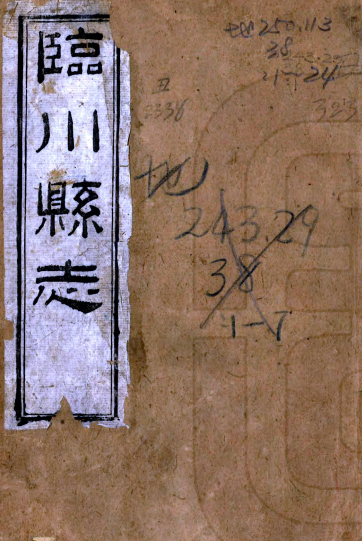 臨川縣志
地250.113
38
21-24
地
243.29
38
1-7